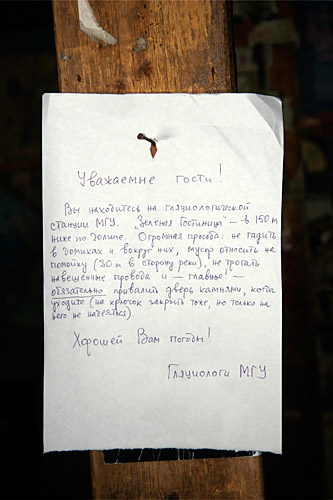 Уважаемые гости!
Вы находитесь на гляциологической
станции МГУ. "Зелёная Гостиница" – в 150 м
ниже по долине. Огромная просьба: не гадить
в домиках и вокруг них, мусор относить на
помойку (30 м в сторону реки), не трогать
навешенные провода и – главное! –
обязательно привалить дверь камнями, когда
уходите (на крючок закрыть тоже, но только на
него не надеяться)
Хорошей Вам погоды!
Гляциологи МГУ